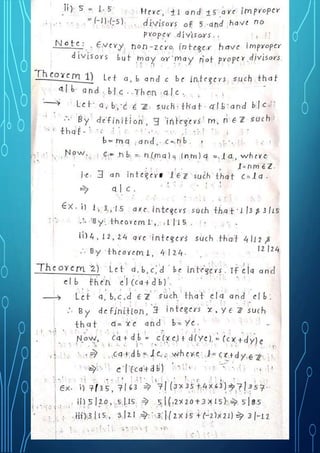 ii) 5 = 1.5
= (-1)(-5)
Here, ±1 and ±5 are improper
divisors of 5 and have no
proper divisors.
Note: Every non-zero integer have improper
divisors but may or may not proper divisors
Theorem 1) Let a, b and c be integers such that
a|b and b|c. Then a|c
→ Let a, b, c ∈ Z such that a|b and b|c
∴ By definition, ∃ integers m, n ∈ Z such
that
b=ma and c=nb
Now, c= nb = n(ma)= (nm)a = la, where
l=nm∈Z
ie. ∃ an integer l∈Z such that c=la.
⇒ a|c.
Ex. i) 1, 3, 15 are integers such that 1|3 & 3|15
∴ By theorem 1, 1|15.
ii) 4, 12, 24 are integers such that 4|12 &
12|24
∴ By theorem 1, 4|24.
Theorem 2) Let a, b, c, d be integers. If e|a and
e|b then e|(ca+db).
→ Let a, b, c, d ∈ Z such that e|a and e|b.
∴ By definition, ∃ integers x, y ∈ Z such
that a=xe and b=ye.
Now, ca+db = c(xe)+d(ye) = (cx+dy)e
⇒ ca+db=le, where l=cx+dy∈Z
⇒ e|(ca+db)
Ex. i) 7|35, 7|63 ⇒ 7|(3×35+4×63)⇒7|357
ii) 5|20, 5|15 ⇒ 5|(2×20+3×15)⇒5|85
iii) 3|15, 3|21 ⇒ 3|(2×15+(-2)×21)⇒3|-12